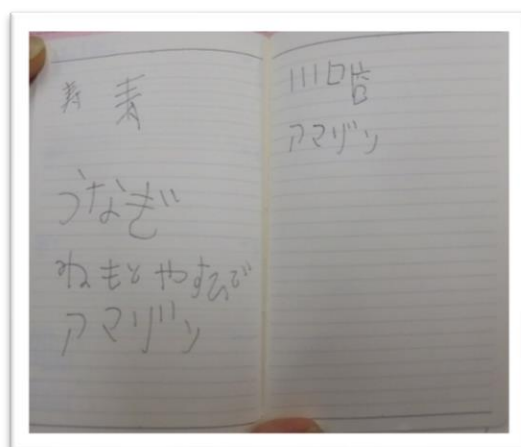 うなぎ
ねもと やすひで
アマゾン
川口
アマゾン